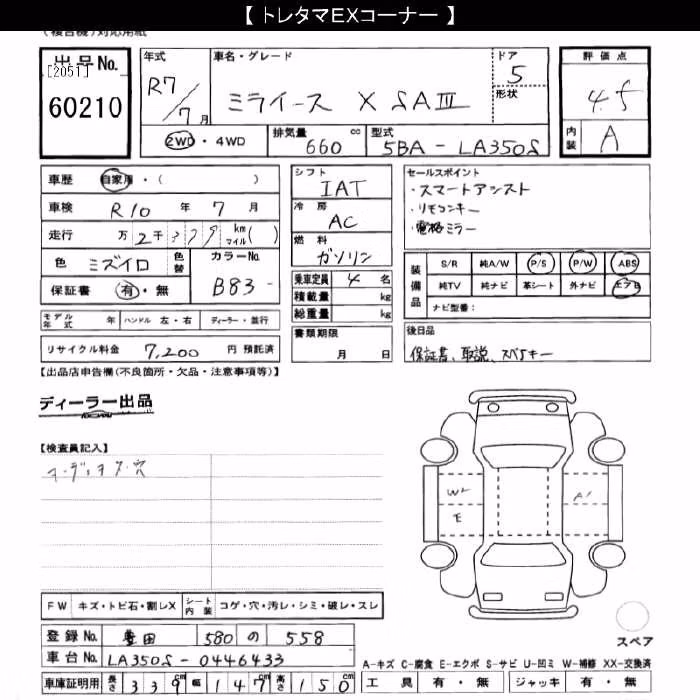 【 トレタマEXコーナー 】
(複合機)対応用紙
出品No.
[2051]
60210
年式
R7/7月
車名・グレード
ミライース X SAⅢ
ドア
5
形状
2WD・4WD
排気量 660 cc
型式 5BA - LA350S
評価点
4.5
内装 A
車歴 自家用・( )
車検 R10 年 7 月
走行 万 2 千 km マイル ( )
色 ミズイロ 色替 カラーNo. B83-
保証書 有・無
モデル年式 年 ハンドル 左・右 ディーラー・並行
リサイクル料金 7,200 円 預託済
シフト IAT
冷房 AC
燃料 ガソリン
乗車定員 4 名
積載量 kg
総重量 kg
書類期限 月 日
セールスポイント
・スマートアシスト
・リモコンキー
・電格ミラー
装備品 S/R 純A/W P/S P/W ABS
純TV 純ナビ 革シート 外ナビ エアB
ナビ型番:
後日品
保証書、取説、スペアキー
【出品店申告欄(不良箇所・欠品・注意事項等)】
ディーラー出品
【検査員記入】
オーディオレス穴
W2
E
A1
FW キズ・トビ石・割レX シート内装 コゲ・穴・汚レ・シミ・破レ・スレ
スペア
登録No. 豊田 580 の 558
車台No. LA350S-0446433
A-キズ C-腐食 E-エクボ S-サビ U-凹ミ W-補修 XX-交換済
車庫証明用 長さ 339cm 幅 147cm 高さ 150cm
工具 有・無 ジャッキ 有・無